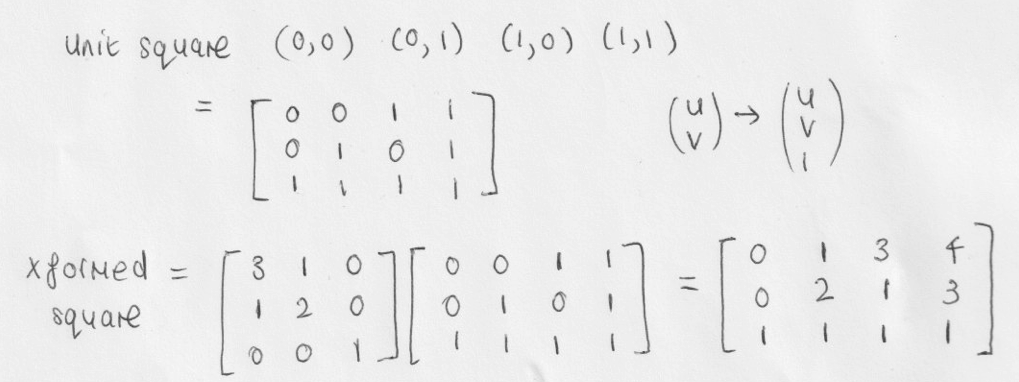 unit square (0,0) (0,1) (1,0) (1,1)
= [ 0 0 1 1
0 1 0 1
1 1 1 1 ]
( u
v ) → ( u
v
1 )
xformed square = [ 3 1 0
1 2 0
0 0 1 ] [ 0 0 1 1
0 1 0 1
1 1 1 1 ] = [ 0 1 3 4
0 2 1 3
1 1 1 1 ]